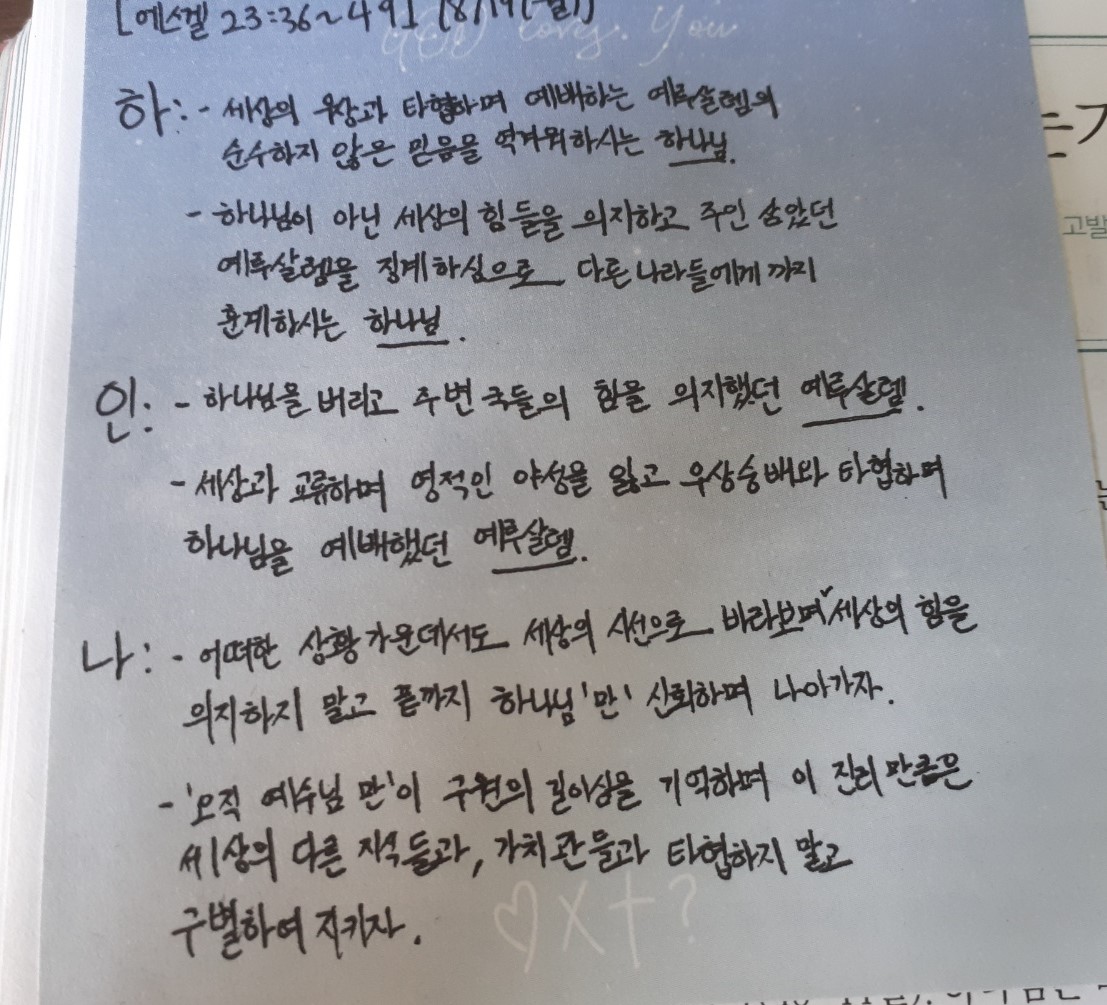 [에스겔 23:36~49] (8/19(월))
GOD loves. You
하: - 세상의 우상과 타협하며 예배하는 예루살렘의
순수하지 않은 믿음을 역겨워하시는 하나님.
- 하나님이 아닌 세상의 힘들을 의지하고 주인 삼았던
예루살렘을 징계하심으로 다른 나라들에게 까지
훈계하시는 하나님.
인: - 하나님을 버리고 주변 국들의 힘을 의지했던 예루살렘.
- 세상과 교류하며 영적인 야성을 잃고 우상숭배와 타협하며
하나님을 예배했던 예루살렘.
나: - 어떠한 상황 가운데서도 세상의 시선으로 바라보며 세상의 힘을
의지하지 말고 끝까지 하나님 '만' 신뢰하며 나아가자.
- '오직 예수님 만'이 구원의 길이심을 기억하며 이 진리 만큼은
세상의 다른 지식들과, 가치관들과 타협하지 말고
구별하여 지키자.
♡ X † ?
는가
고발